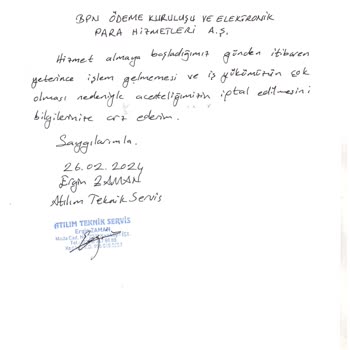 BPN ÖDEME KURULUŞU VE ELEKTRONİK
PARA HİZMETLERİ A.Ş.
Hizmet almaya başladığımız günden itibaren
yeterince işlem gelmemesi ve iş yükümüzün çok
olması nedeniyle acenteliğimizin iptal edilmesini
bilgilerinize arz ederim.
Saygılarımla.
26.02.2024
Ergin ZAMAN
Atılım Teknik Servis
ATILIM TEKNİK SERVİS
Ergin ZAMAN